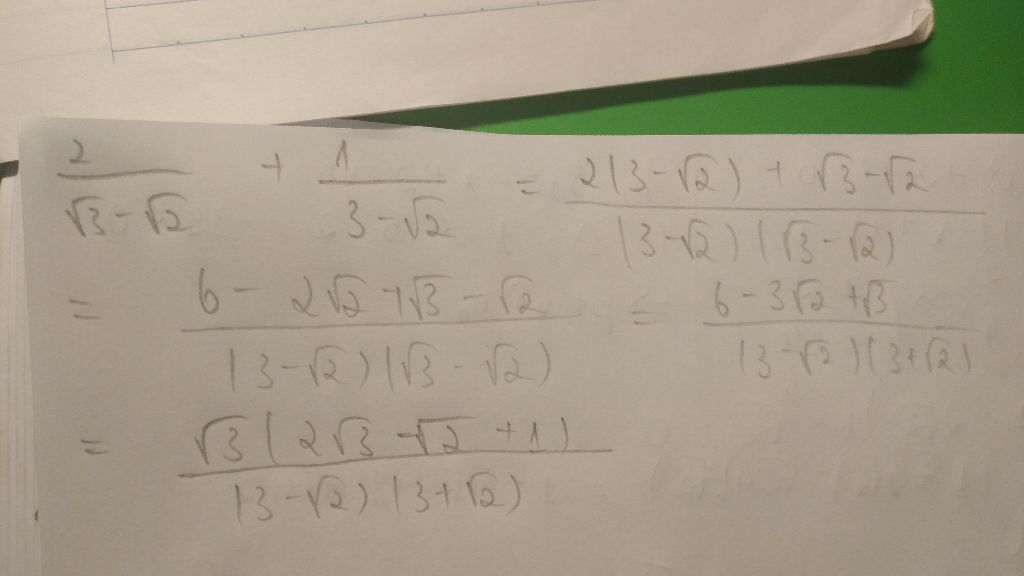 2/(√3-√2) + 1/(3-√2) = (2(3-√2) + √3-√2)/((3-√2)(√3-√2))
= (6 - 2√2 + √3 - √2)/((3-√2)(√3-√2)) = (6 - 3√2 + √3)/((3-√2)(3+√2))
= (√3(2√3 - √2 + 1))/((3-√2)(3+√2))